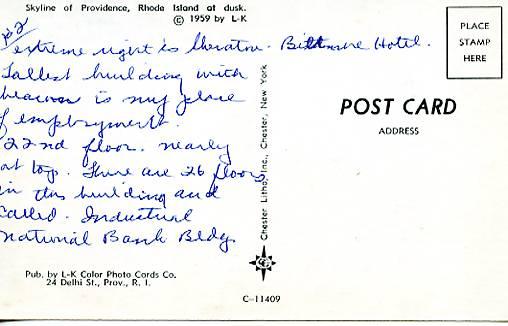 Skyline of Providence, Rhode Island at dusk.
© 1959 by L-K
p 2
extreme right is Sheraton - Biltmore Hotel.
Tallest building with
beacon is my place
of employment.
22nd floor. nearly
at top. There are 26 floors
in this building and
called. Industrial
National Bank Bldg
Pub. by L-K Color Photo Cards Co.
24 Delhi St., Prov., R. I.
Chester Litho, Inc., Chester, New York
C-11409
PLACE
STAMP
HERE
POST CARD
ADDRESS